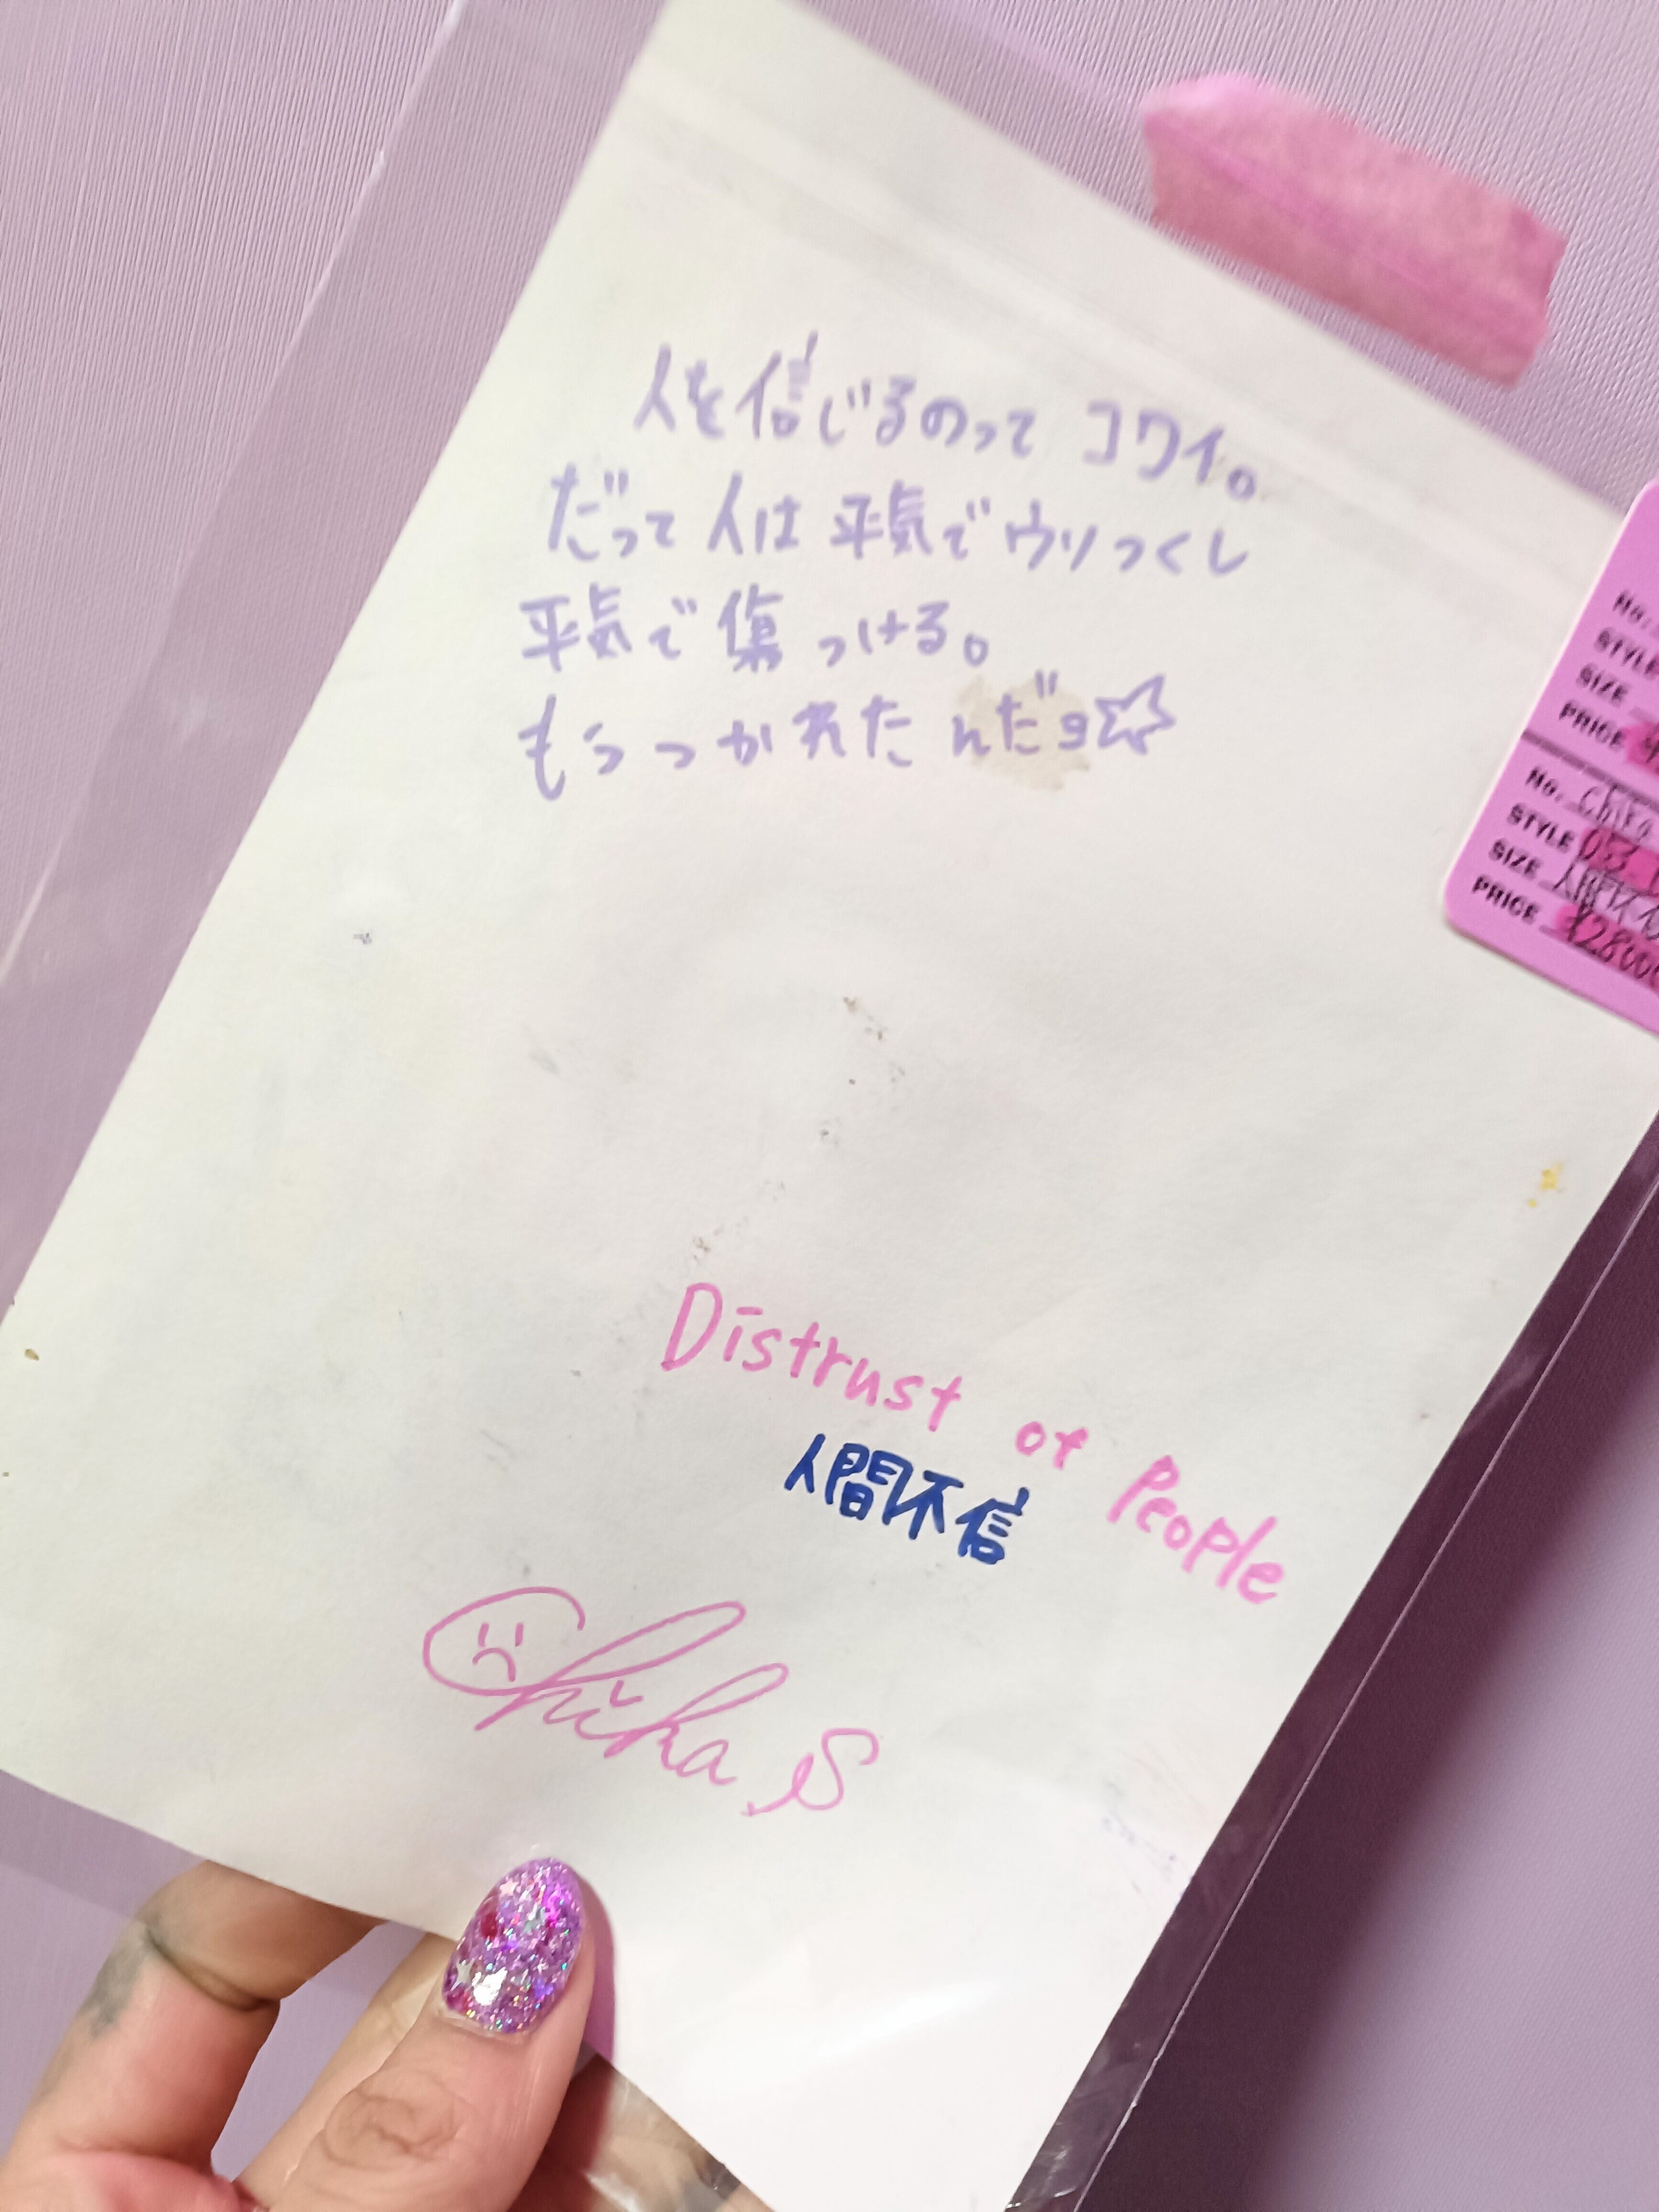 人を信じるのって コワイ。
だって 人は 平気で ウソっくし
平気で 傷 っける。
もう っかれた んだョ☆
Distrust of People
人間不信
Chika.S
No.
STYLE
SIZE
PRICE
No. Chika
STYLE 03
SIZE 人間不
PRICE ¥2800